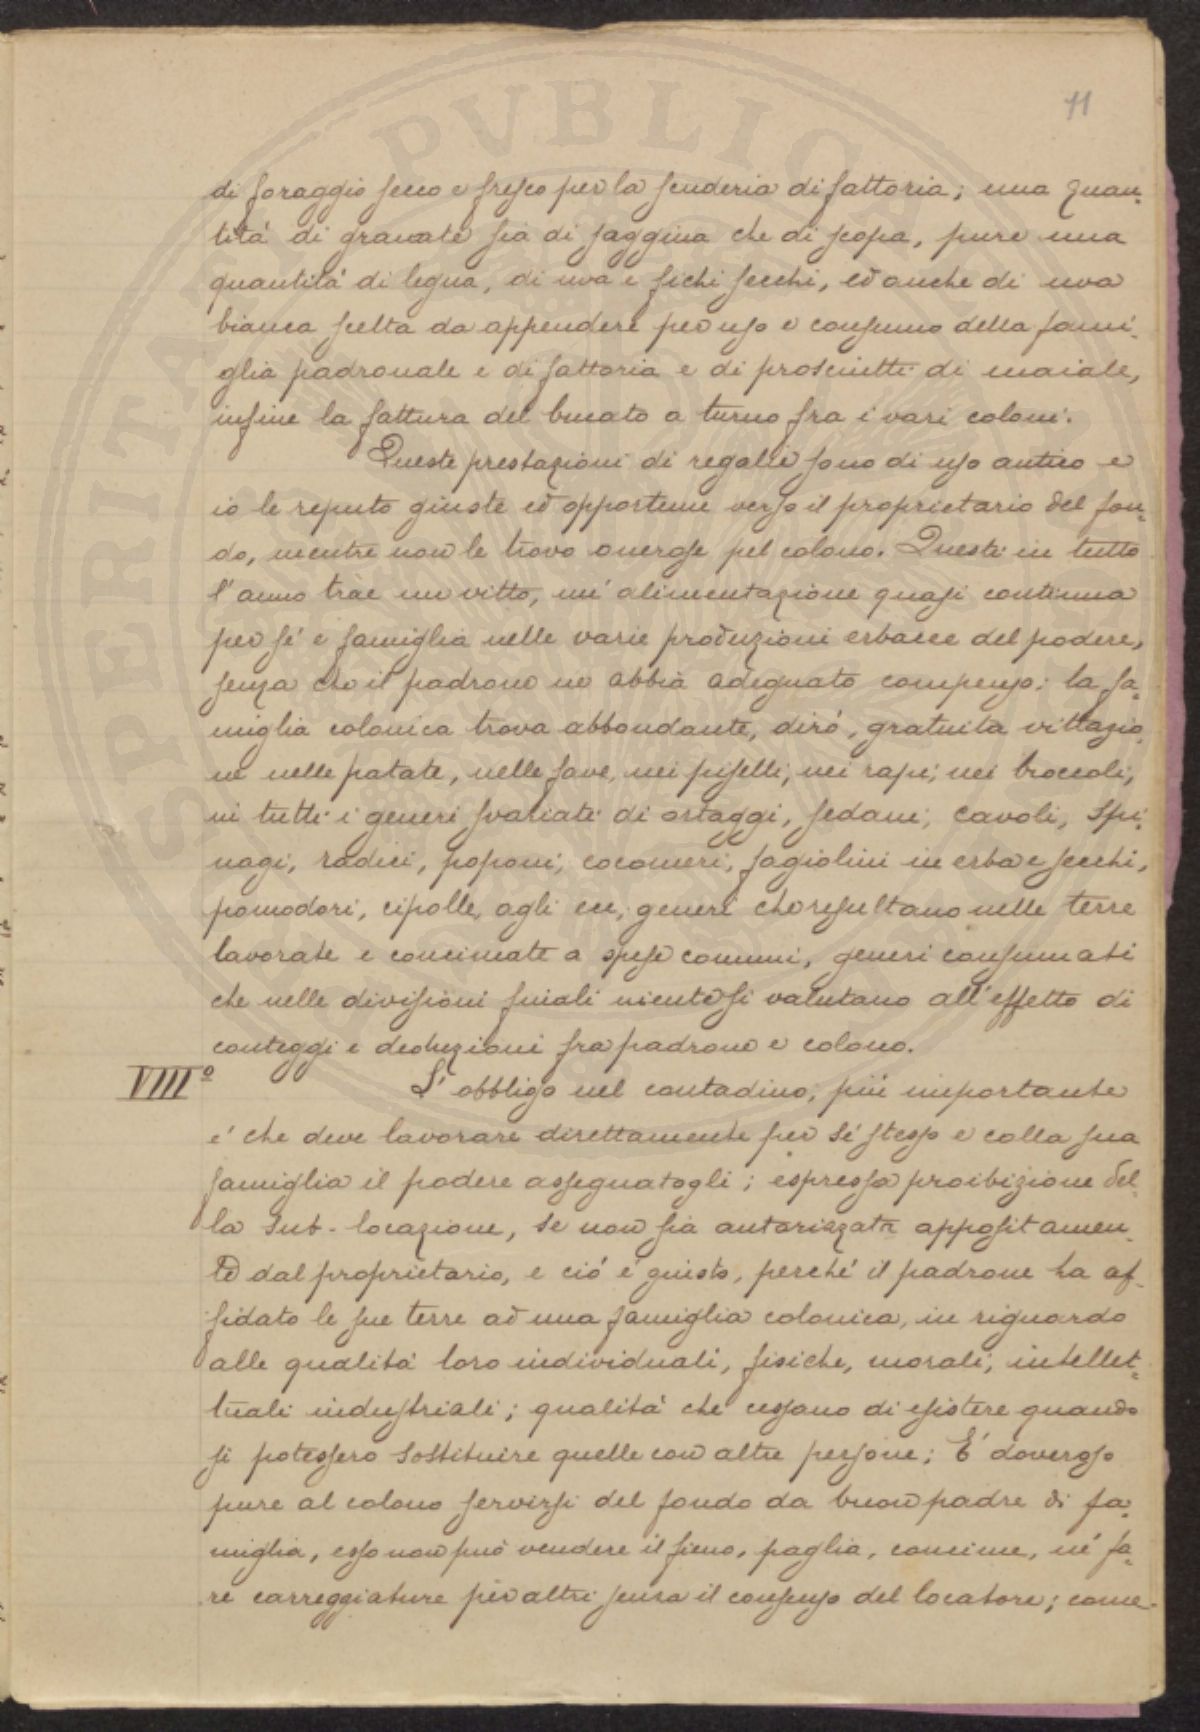 11
di foraggio secco e fresco per la scuderia di fattoria; una quan-
tità di granate sia di saggina che di scopa, pure una
quantità di legna, di uva e fichi secchi, ed anche di uva
bianca scelta da appendere per uso e consumo della fami-
glia padronale e di fattoria e di prosciutti di maiale,
infine la fattura del bucato a turno fra i vari coloni.
Queste prestazioni di regalie sono di uso antico e
io le reputo giuste ed opportune verso il proprietario del fon-
do, mentre non le trovo onerose pel colono. Questi in tutto
l'anno trae un vitto, un'alimentazione quasi continua
per sé e famiglia nelle varie produzioni erbacee del podere,
senza che il padrone ne abbia adeguato compenso: la fa-
miglia colonica trova abbondante, dirò, gratuita vittazio-
ne nelle patate, nelle fave, nei piselli, nei rapi, nei broccoli,
in tutti i generi svariati di ortaggi, sedani, cavoli, spi-
nagi, radici, poponi, cocomeri, fagiolini in erba e secchi,
pomodori, cipolle, agli ecc, generi che resultano nelle terre
lavorate e concimate a spese comuni, generi consumati
che nelle divisioni finali niente si valutano all'effetto di
conteggi e deduzioni fra padrone e colono.
VIIIº L'obbligo nel contadino, più importante
é che deve lavorare direttamente per sé stesso e colla sua
famiglia il podere assegnatogli; espressa proibizione del-
la sub-locazione, se non sia autorizzata appositamen-
te dal proprietario, e ciò é giusto, perché il padrone ha af-
fidato le sue terre ad una famiglia colonica, in riguardo
alle qualità loro individuali, fisiche, morali, intellet-
tuali industriali; qualità che cessano di esistere quando
si potessero sostituire quelle con altre persone; É doveroso
pure al colono servirsi del fondo da buon padre di fa-
miglia, esso non può vendere il fieno, paglia, concime, né fa-
re carreggiature per altri senza il consenso del locatore; come-
SPERITAS PVBLICA